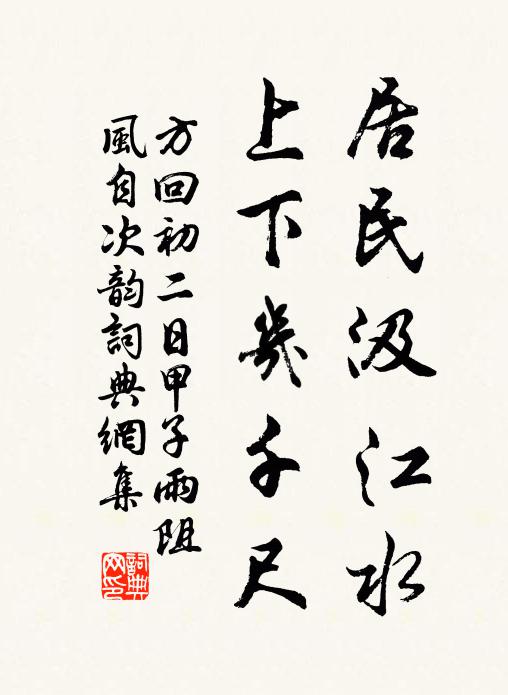 居民汲江水
上下幾千尺
方回初二日甲子雨阻
風自次韵詞典網集
詞典
网印